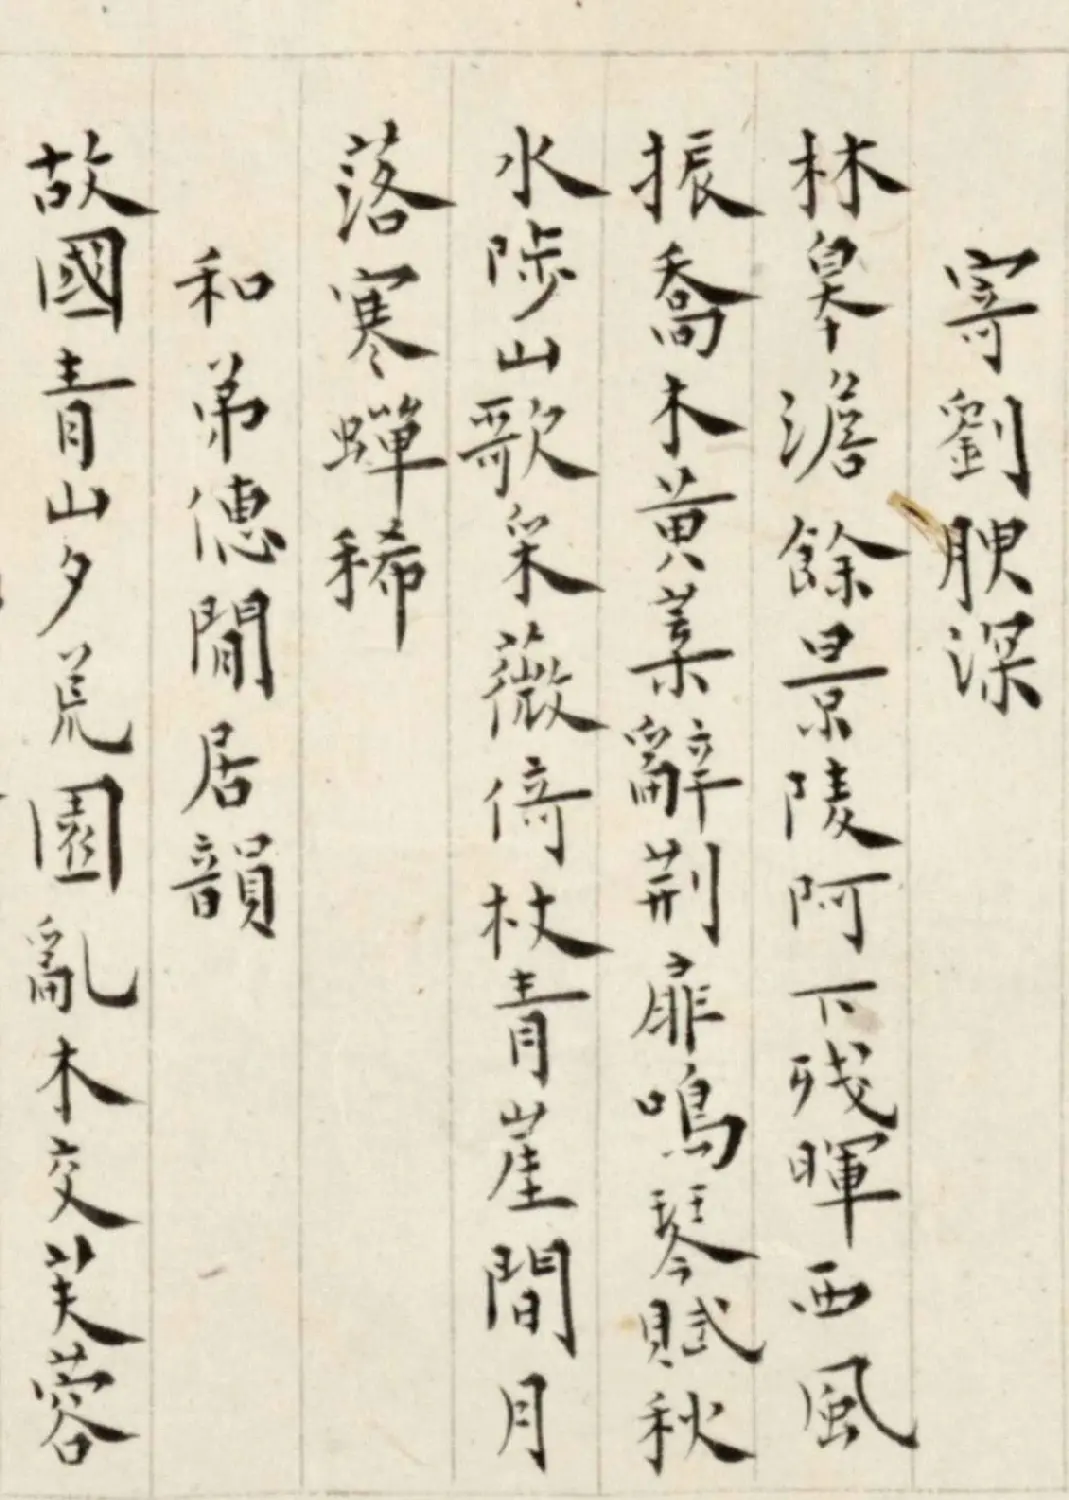 寄劉腴深
林皋澹餘景陵阿下殘暉西風
振喬木黃葉辭荆扉鳴琴賦秋
水陟山歌采薇倚杖青崖間月
落寒蟬稀
和弟德閒居韻
故國青山夕荒園亂木交芙蓉